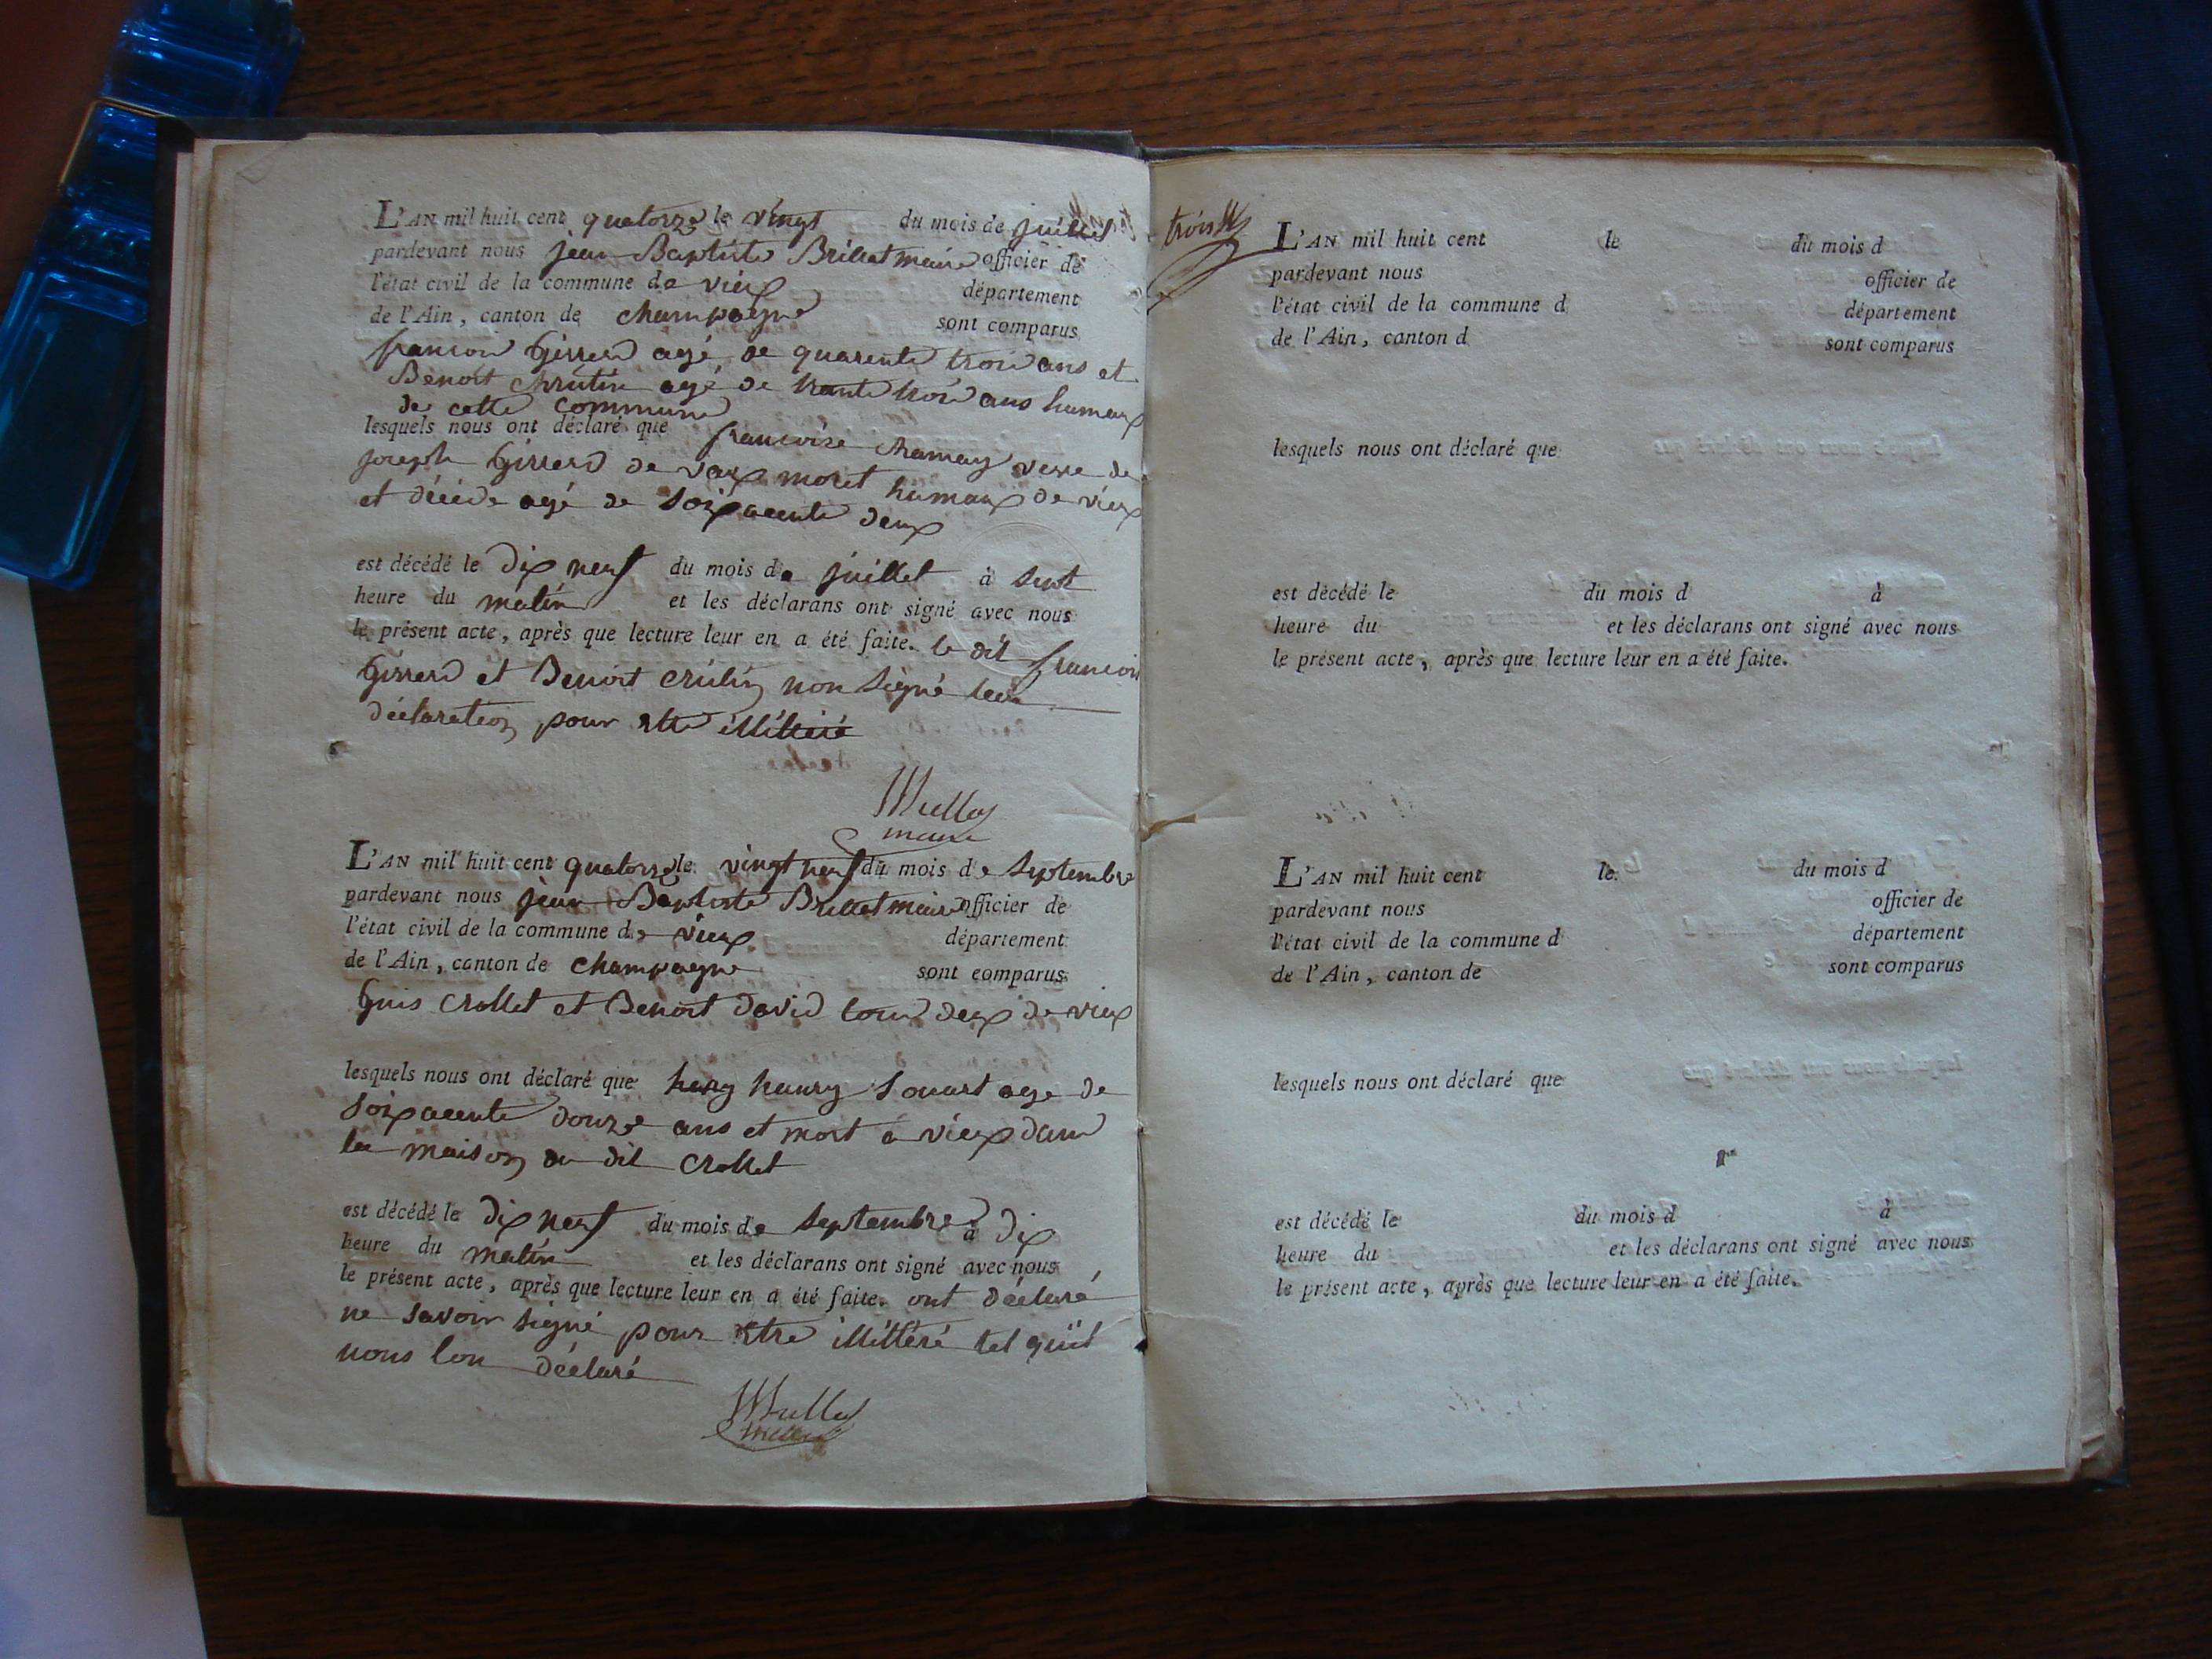 L'AN mil huit cent quatorze le vingt du mois de juillet
pardevant nous jean Baptiste Brillat maire officier de
l'état civil de la commune de vieux département
de l'Ain, canton de champagne sont comparus
francois Girrerd agé de quarente trois ans et
Benoit agé de trante trois ans
de cette commune
lesquels nous ont déclaré que francoise chamay de
joseph Girrerd de de vieux
et décéde agé de soixacente deux
est décédé le dix neuf du mois de juillet à sept
heure du matin et les déclarans ont signé avec nous
le présent acte, après que lecture leur en a été faite. le dit francois
Girrerd et Benoit non signé leur
déclaration pour etre illitéré
maire
L'AN mil huit cent quatorze le vingt neuf du mois de septembre
pardevant nous jean Baptiste Brillat maire officier de
l'état civil de la commune de vieux département
de l'Ain, canton de champagne sont comparus
Guis Crollet et Benoit david tous deux de vieux
lesquels nous ont déclaré que hanry age de
soixacente douze ans et mort a vieux dans
la maison du dit Crollet
est décédé le dix neuf du mois de septembre à dix
heure du matin et les déclarans ont signé avec nous
le présent acte, après que lecture leur en a été faite. ont déclaré
ne savoir signé pour etre illittéré tel quil
nous lon déclaré
maire
trois
L'AN mil huit cent le du mois d
pardevant nous officier de
l'état civil de la commune d département
de l'Ain, canton d sont comparus
lesquels nous ont déclaré que
est décédé le du mois d à
heure du et les déclarans ont signé avec nous
le présent acte, après que lecture leur en a été faite.
L'AN mil huit cent le du mois d
pardevant nous officier de
l'état civil de la commune d département
de l'Ain, canton de sont comparus
lesquels nous ont déclaré que
est décédé le du mois d à
heure du et les déclarans ont signé avec nous
le présent acte, après que lecture leur en a été faite.